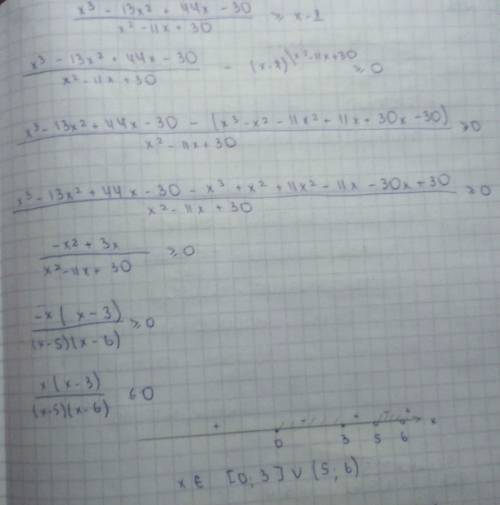 (x³ - 13x² + 44x - 30)/(x² - 11x + 30) ≥ x - 1
(x³ - 13x² + 44x - 30)/(x² - 11x + 30) - (x-1)^(x²-11x+30) ≥ 0
(x³ - 13x² + 44x - 30 - (x³ - x² - 11x² + 11x + 30x - 30))/(x² - 11x + 30) ≥ 0
(x³ - 13x² + 44x - 30 - x³ + x² + 11x² - 11x - 30x + 30)/(x² - 11x + 30) ≥ 0
(-x² + 3x)/(x² - 11x + 30) ≥ 0
(-x(x-3))/((x-5)(x-6)) ≥ 0
(x(x-3))/((x-5)(x-6)) ≤ 0
+ - + - +
0 3 5 6 x
x ∈ [0, 3] ∪ (5, 6)